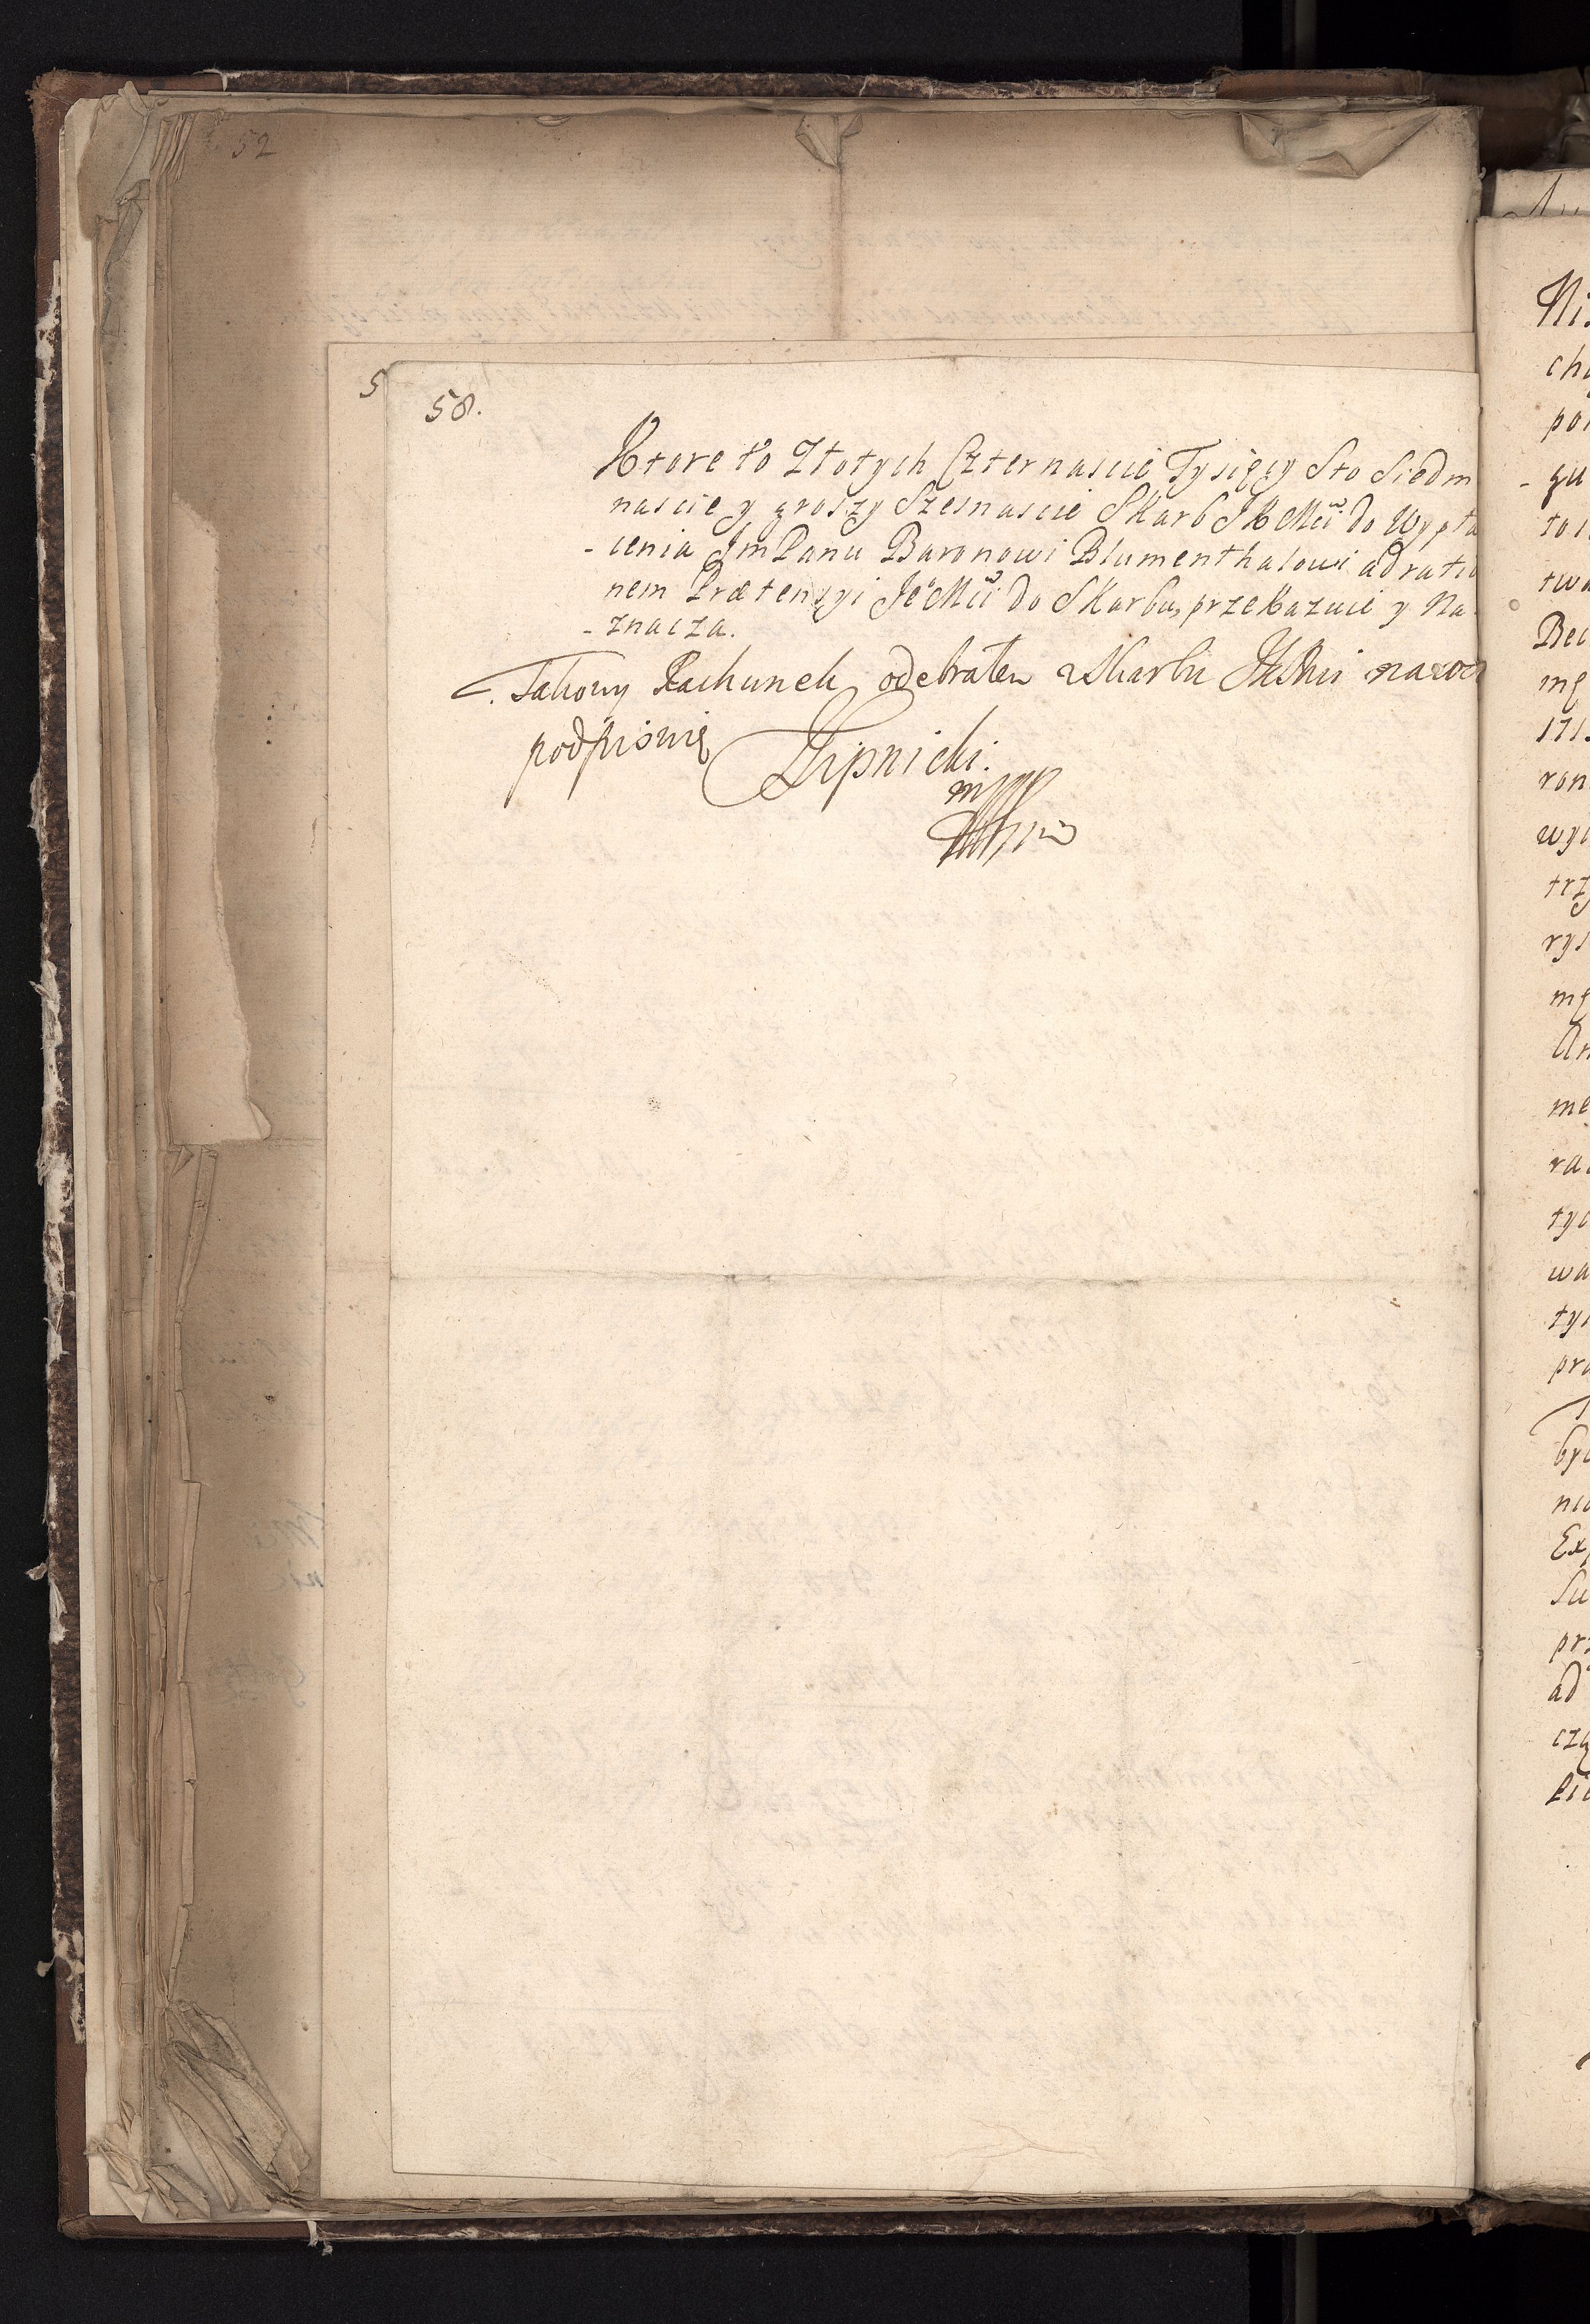 52
5
58.
Ktore to Złotych Czternascie Tysięcy Sto Siedm
nascie y groszy Szesnascie Skarb JKMci do Wypła
-cenia JmPanu Baronowi Blumenthalowi ad ratio
nem Prætensyi JeoMci do Skarbu, przekazuie y Na-
-znacza.
Takowy Rachunek odebrałem z Skarbu JKMci na co
podpisuię Lipnicki.
mpp
Ni
cho
por
- gu
to i
two
Bec
mę
171
ron
wyc
trz
rys
mę
An
me
rac
tyc
wa
tyc
pro
byc
nic
Exp
Su
prz
ad
czą